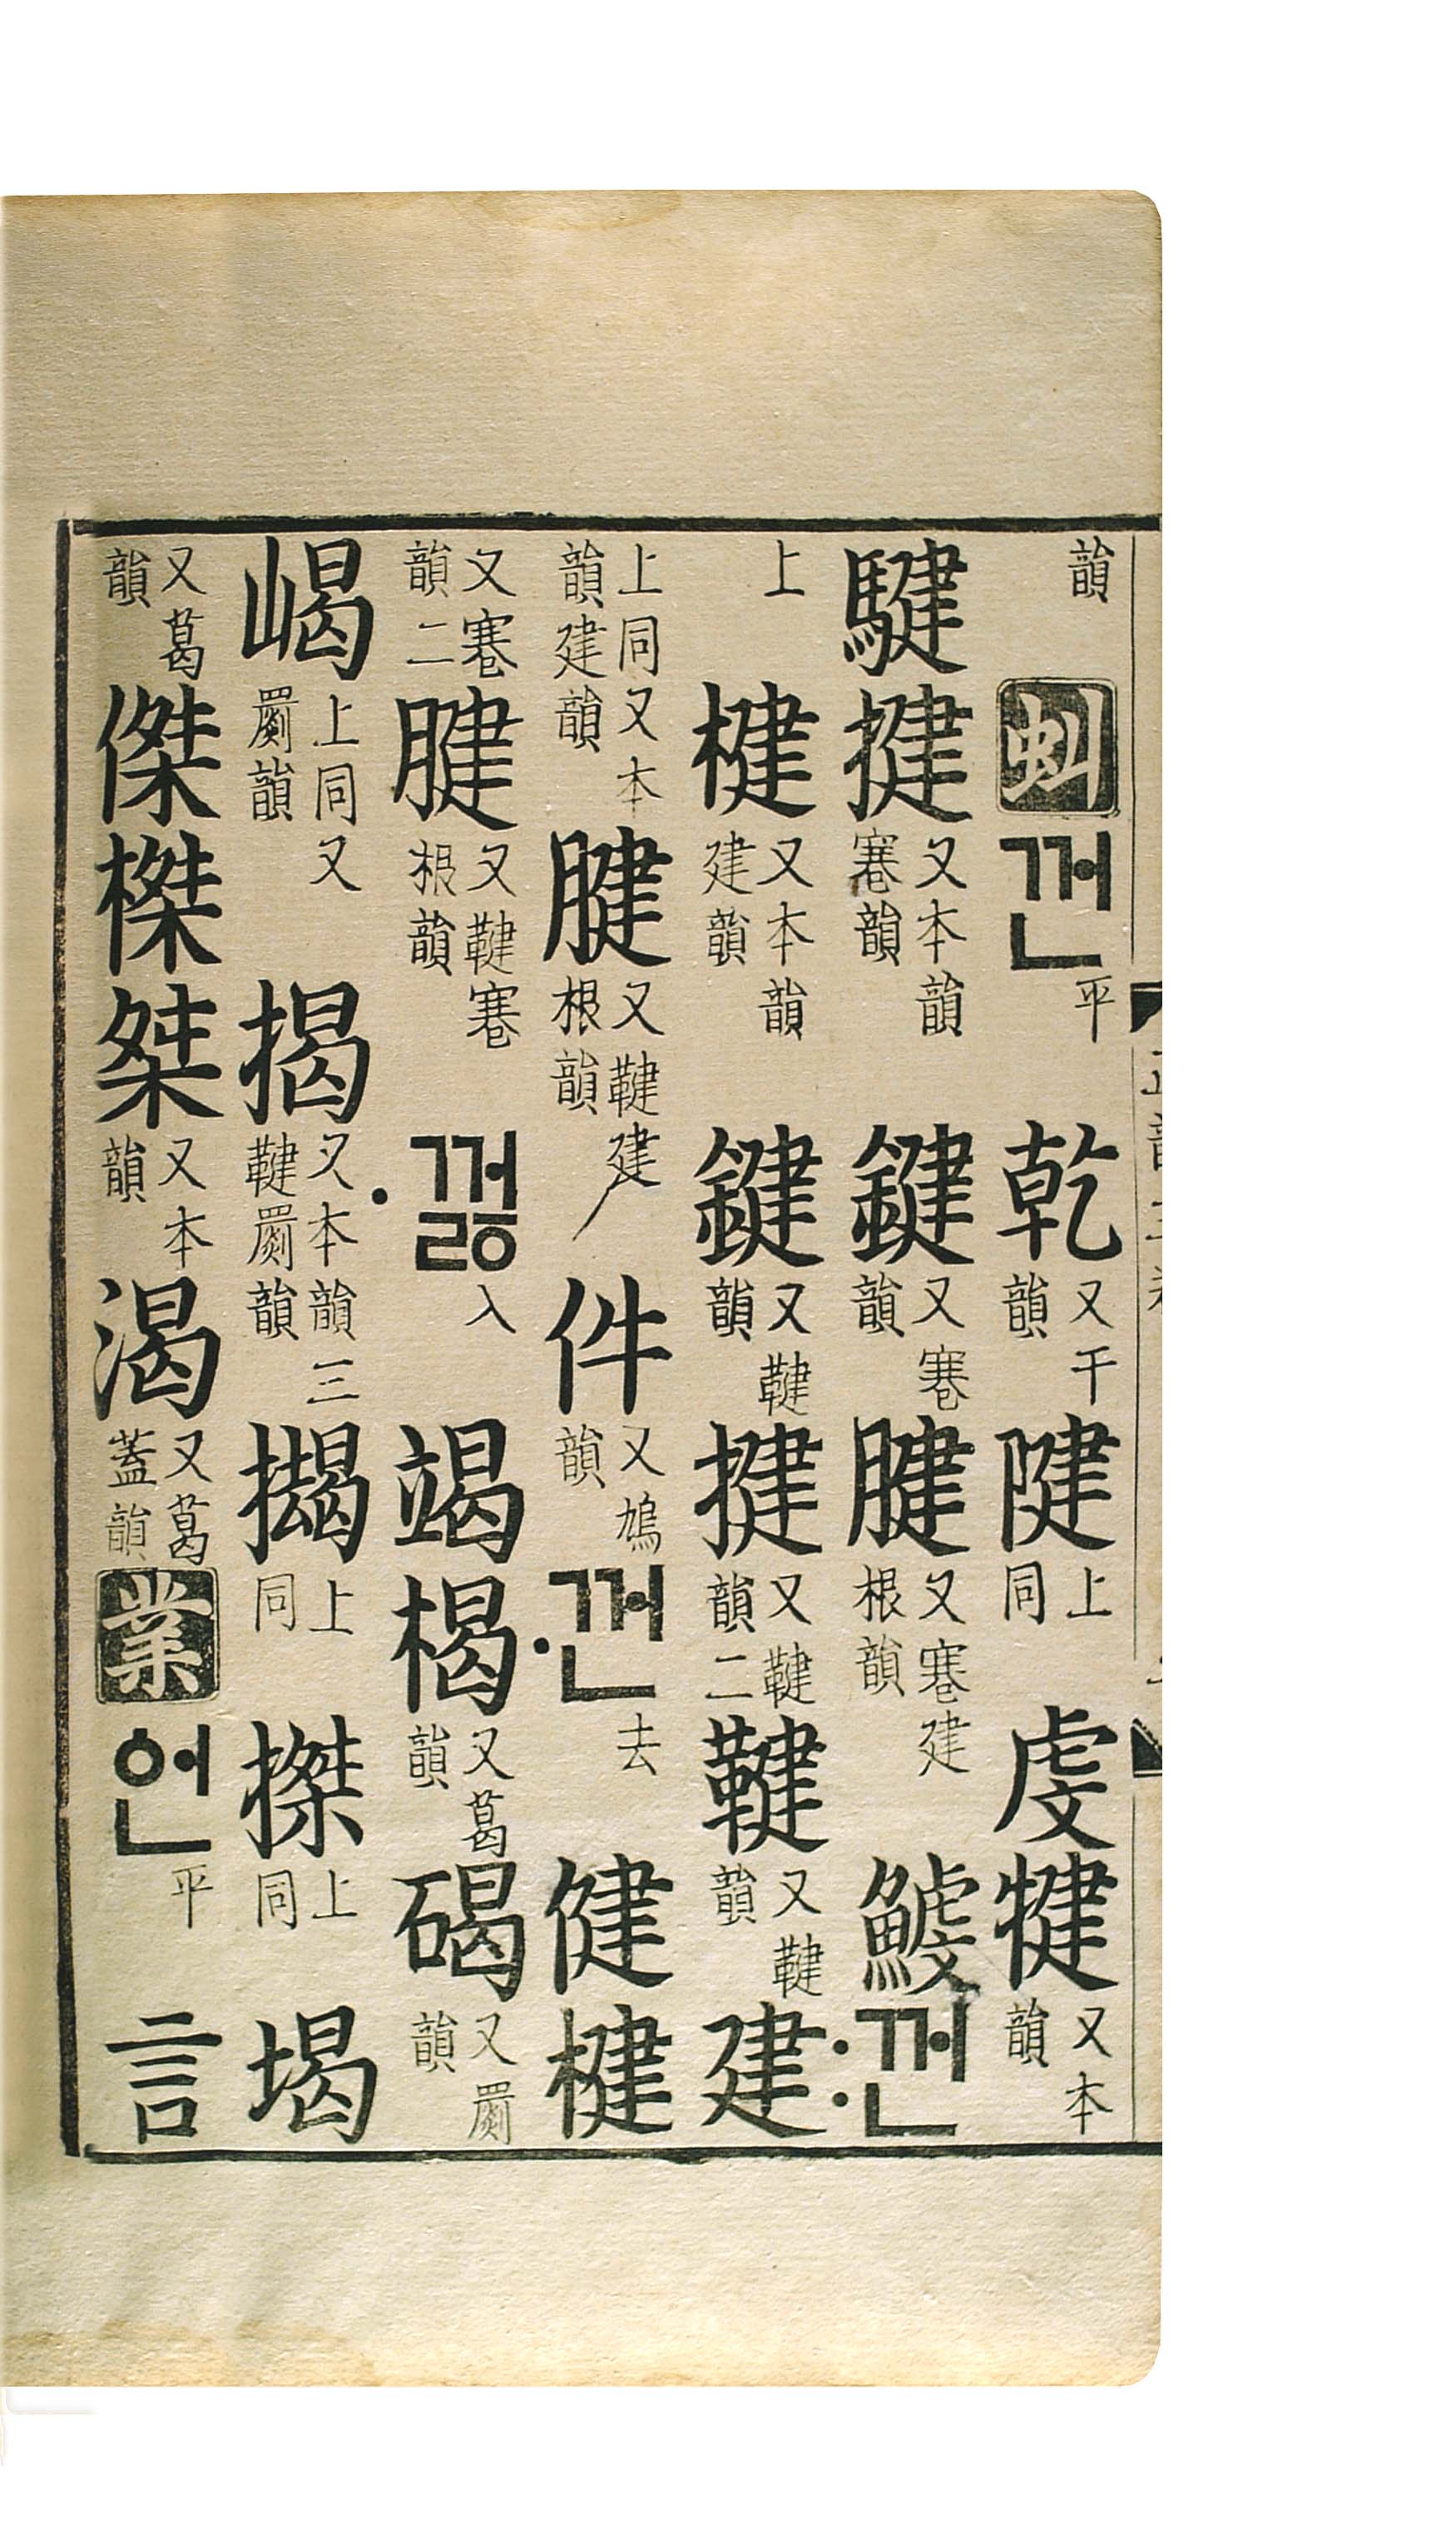 韻虯껀平乾又干韻𨺩上同虔犍又本韻
騝揵又本韻寋韻鍵又寋韻腱又寋建根韻鰬:껀
上楗又本韻建韻鍵又鞬韻揵又鞬韻二鞬又鞬韻建
上同又本韻建韻腱又鞬建根韻件又鳩韻·껀去健楗
又寋韻二腱又鞬寋根韻·꺼ᇙ入竭楬又葛韻碣又罽韻
嵑上同又罽韻揭又本韻三鞬罽韻擖上同搩上同堨
又葛韻傑榤桀又本韻渴又葛蓋韻業언平言